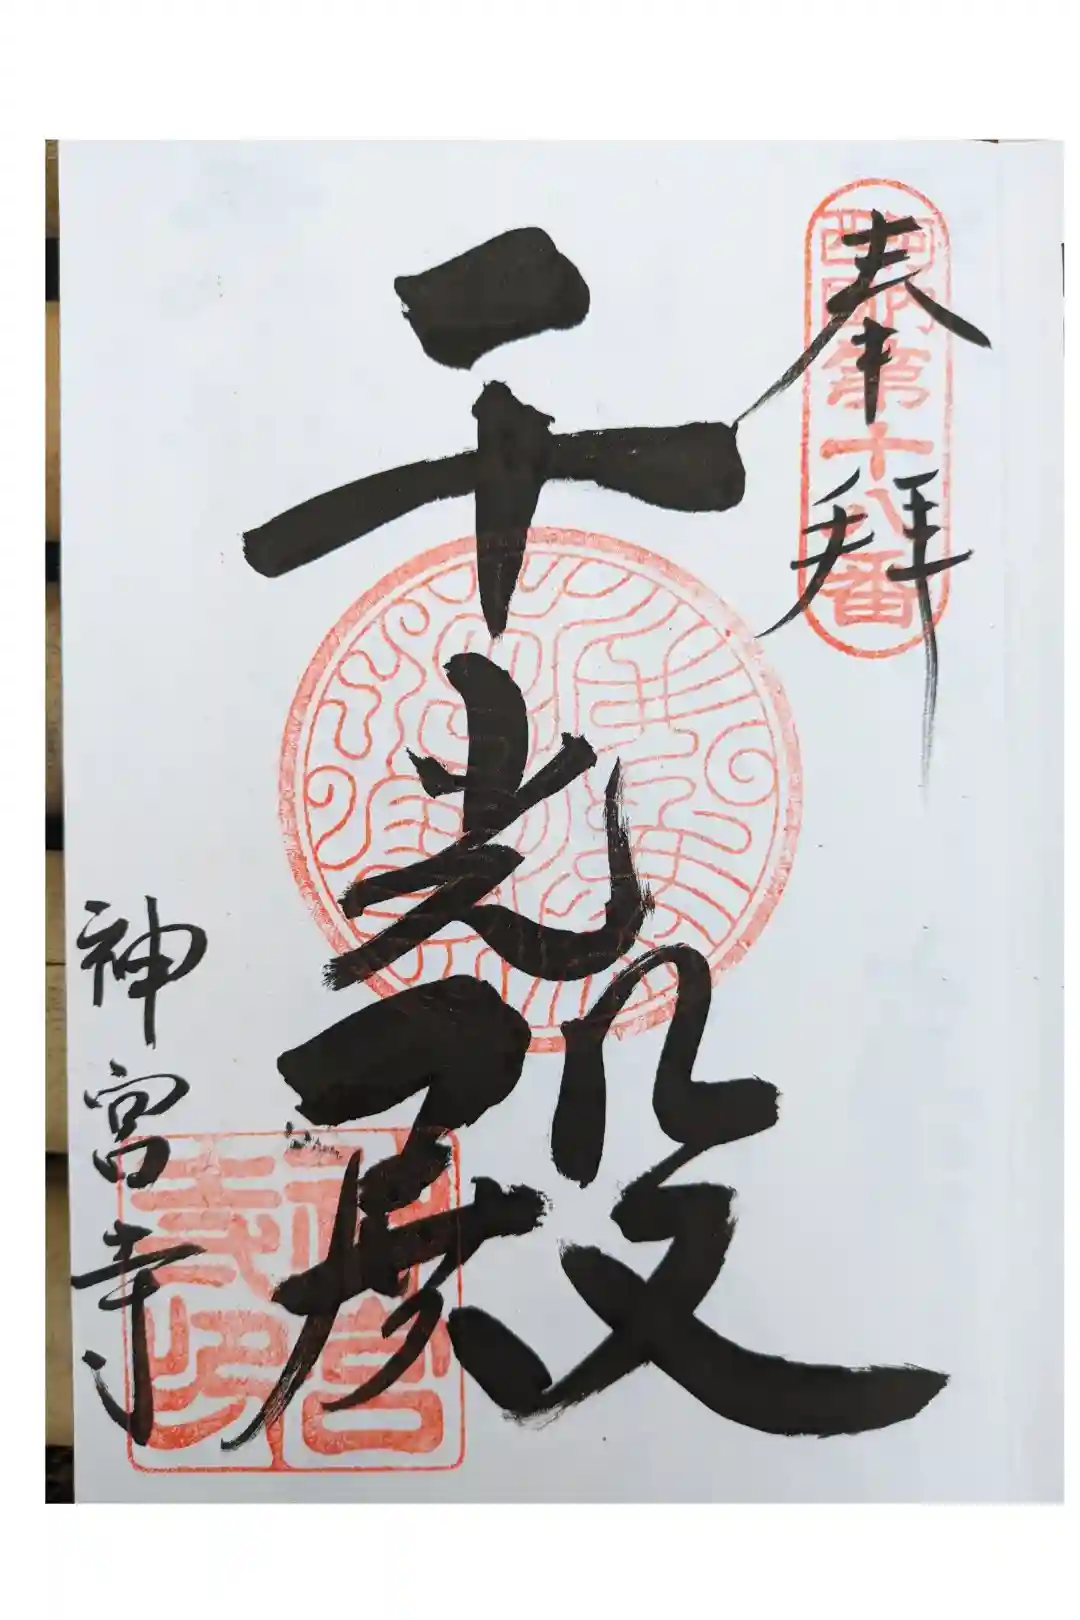 奉拝
第十八番
千光殿
神宮寺
神宮寺印